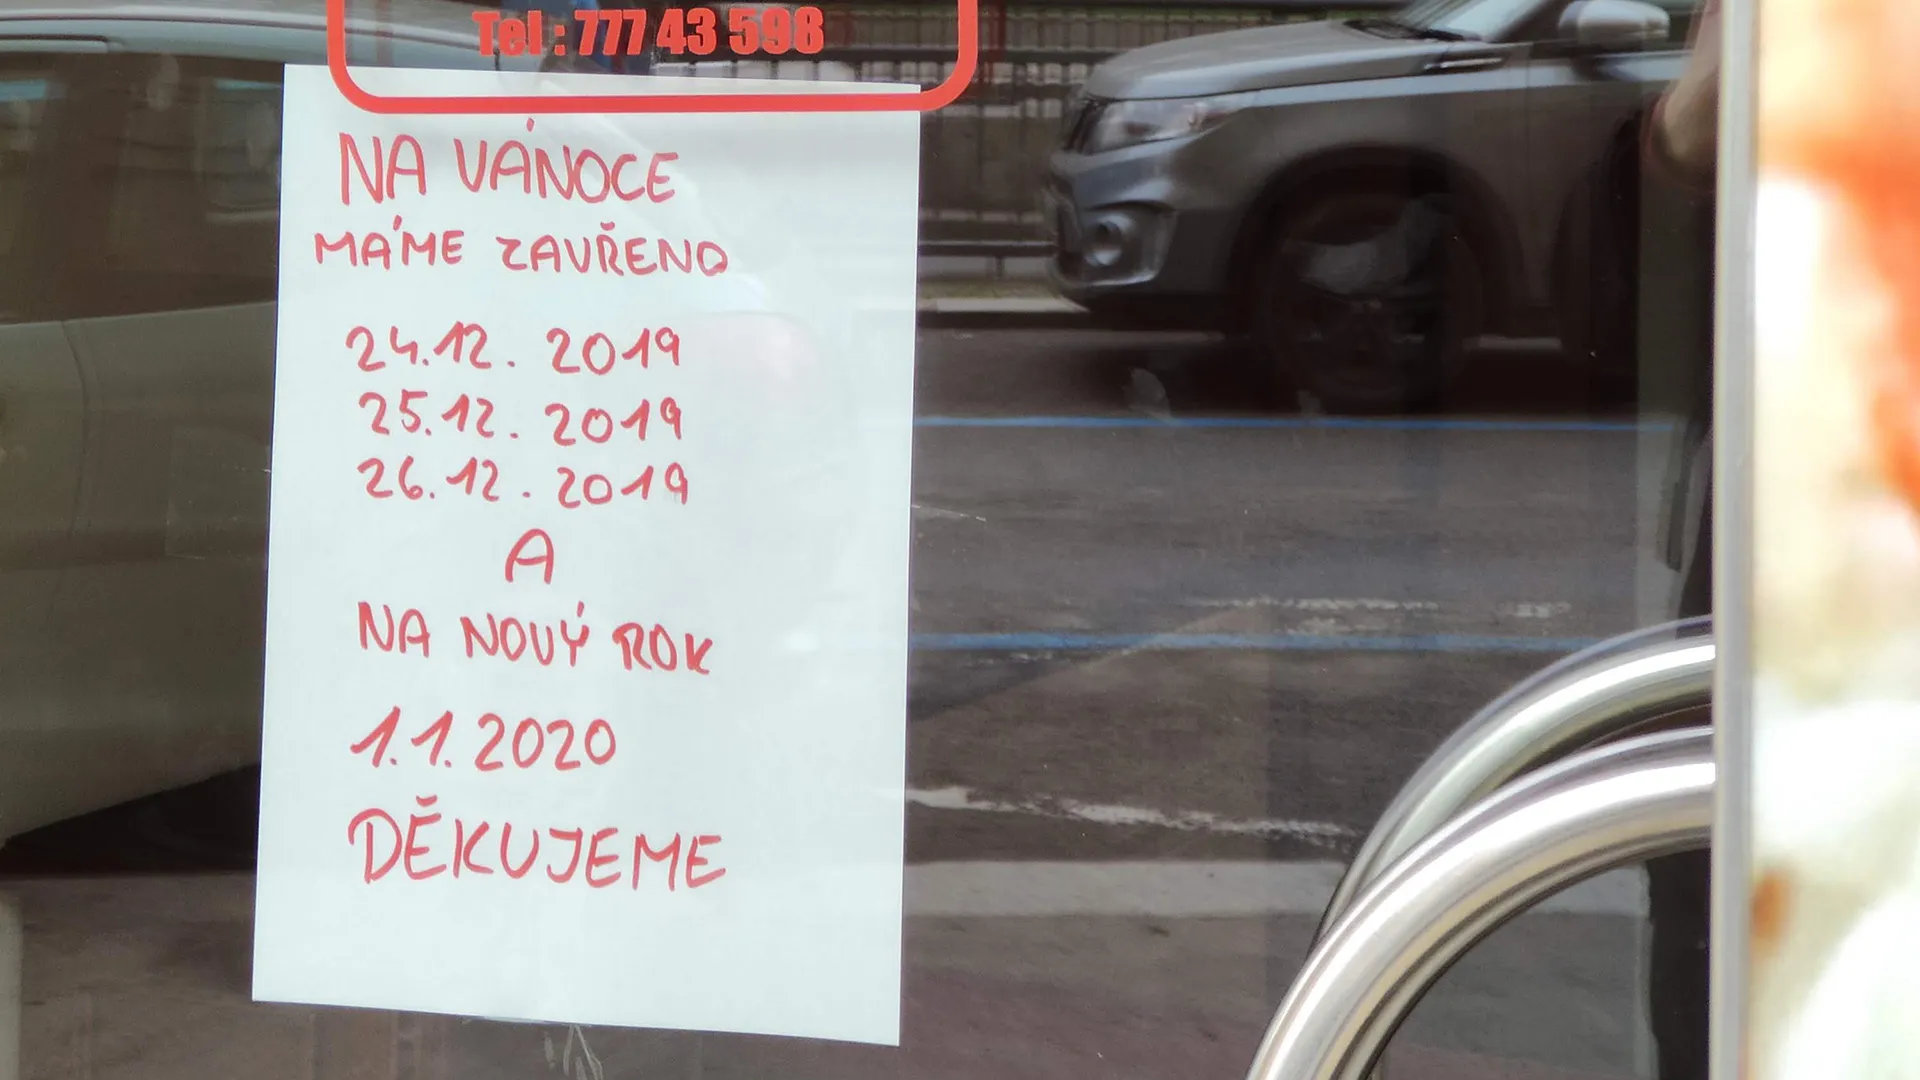 Tel : 777 43 598
NA VÁNOCE
MÁME ZAVŘENO
24.12. 2019
25.12. 2019
26.12. 2019
A
NA NOVÝ ROK
1.1.2020
DĚKUJEME